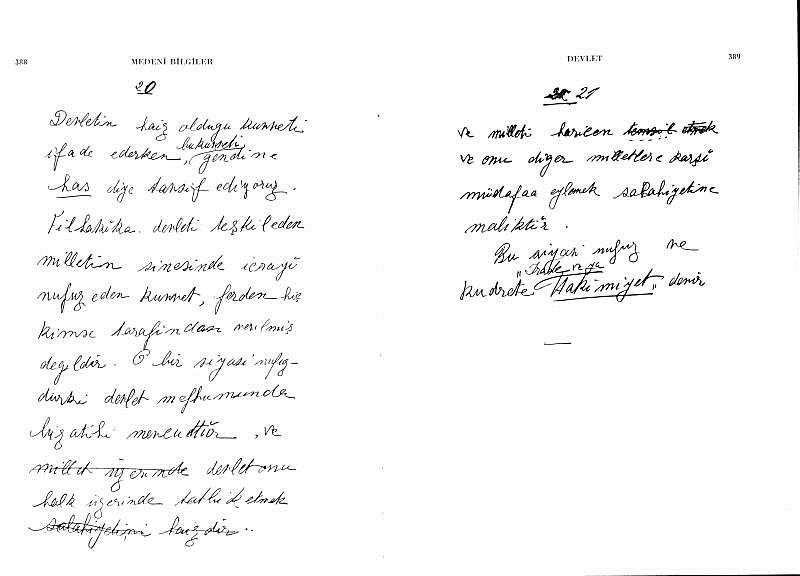 388
MEDENİ BİLGİLER
20
Devletin haiz olduğu kuvveti
ifade ederken, bu kuvveti, gendine
has diye tavsif ediyoruz.
Filhakika devleti teşkil eden
milletin sinesinde icrayi
nufuz eden kuvvet, ferden hiç
kimse tarafından verilmiş
değildir. O bir siyasi nufuz-
durki devlet mefhumunda
bizatihi mevcuttür, ve
millet üzerinde devlet onu
halk üzerinde tatbik etmek
salahiyetini haizdir..
DEVLET
389
21
ve milleti haricen temsil etmek
ve onu diğer milletlere karşı
müdafaa eylemek salahiyetine
maliktir.
Bu siyasi nufuz ve
kudrete "İrade veya Hakimiyet" denir